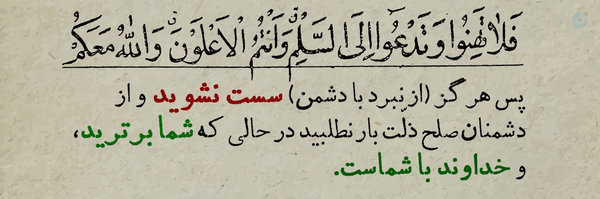 فَلَا تَهِنُوا وَتَدْعُوا إِلَى السَّلْمِ وَأَنْتُمُ الْأَعْلَوْنَ وَاللَّهُ مَعَكُمْ
پس هرگز (از نبرد با دشمن) سست نشوید و از
دشمنان صلح ذلت بار نطلبید در حالی که شما برترید،
و خداوند با شماست.